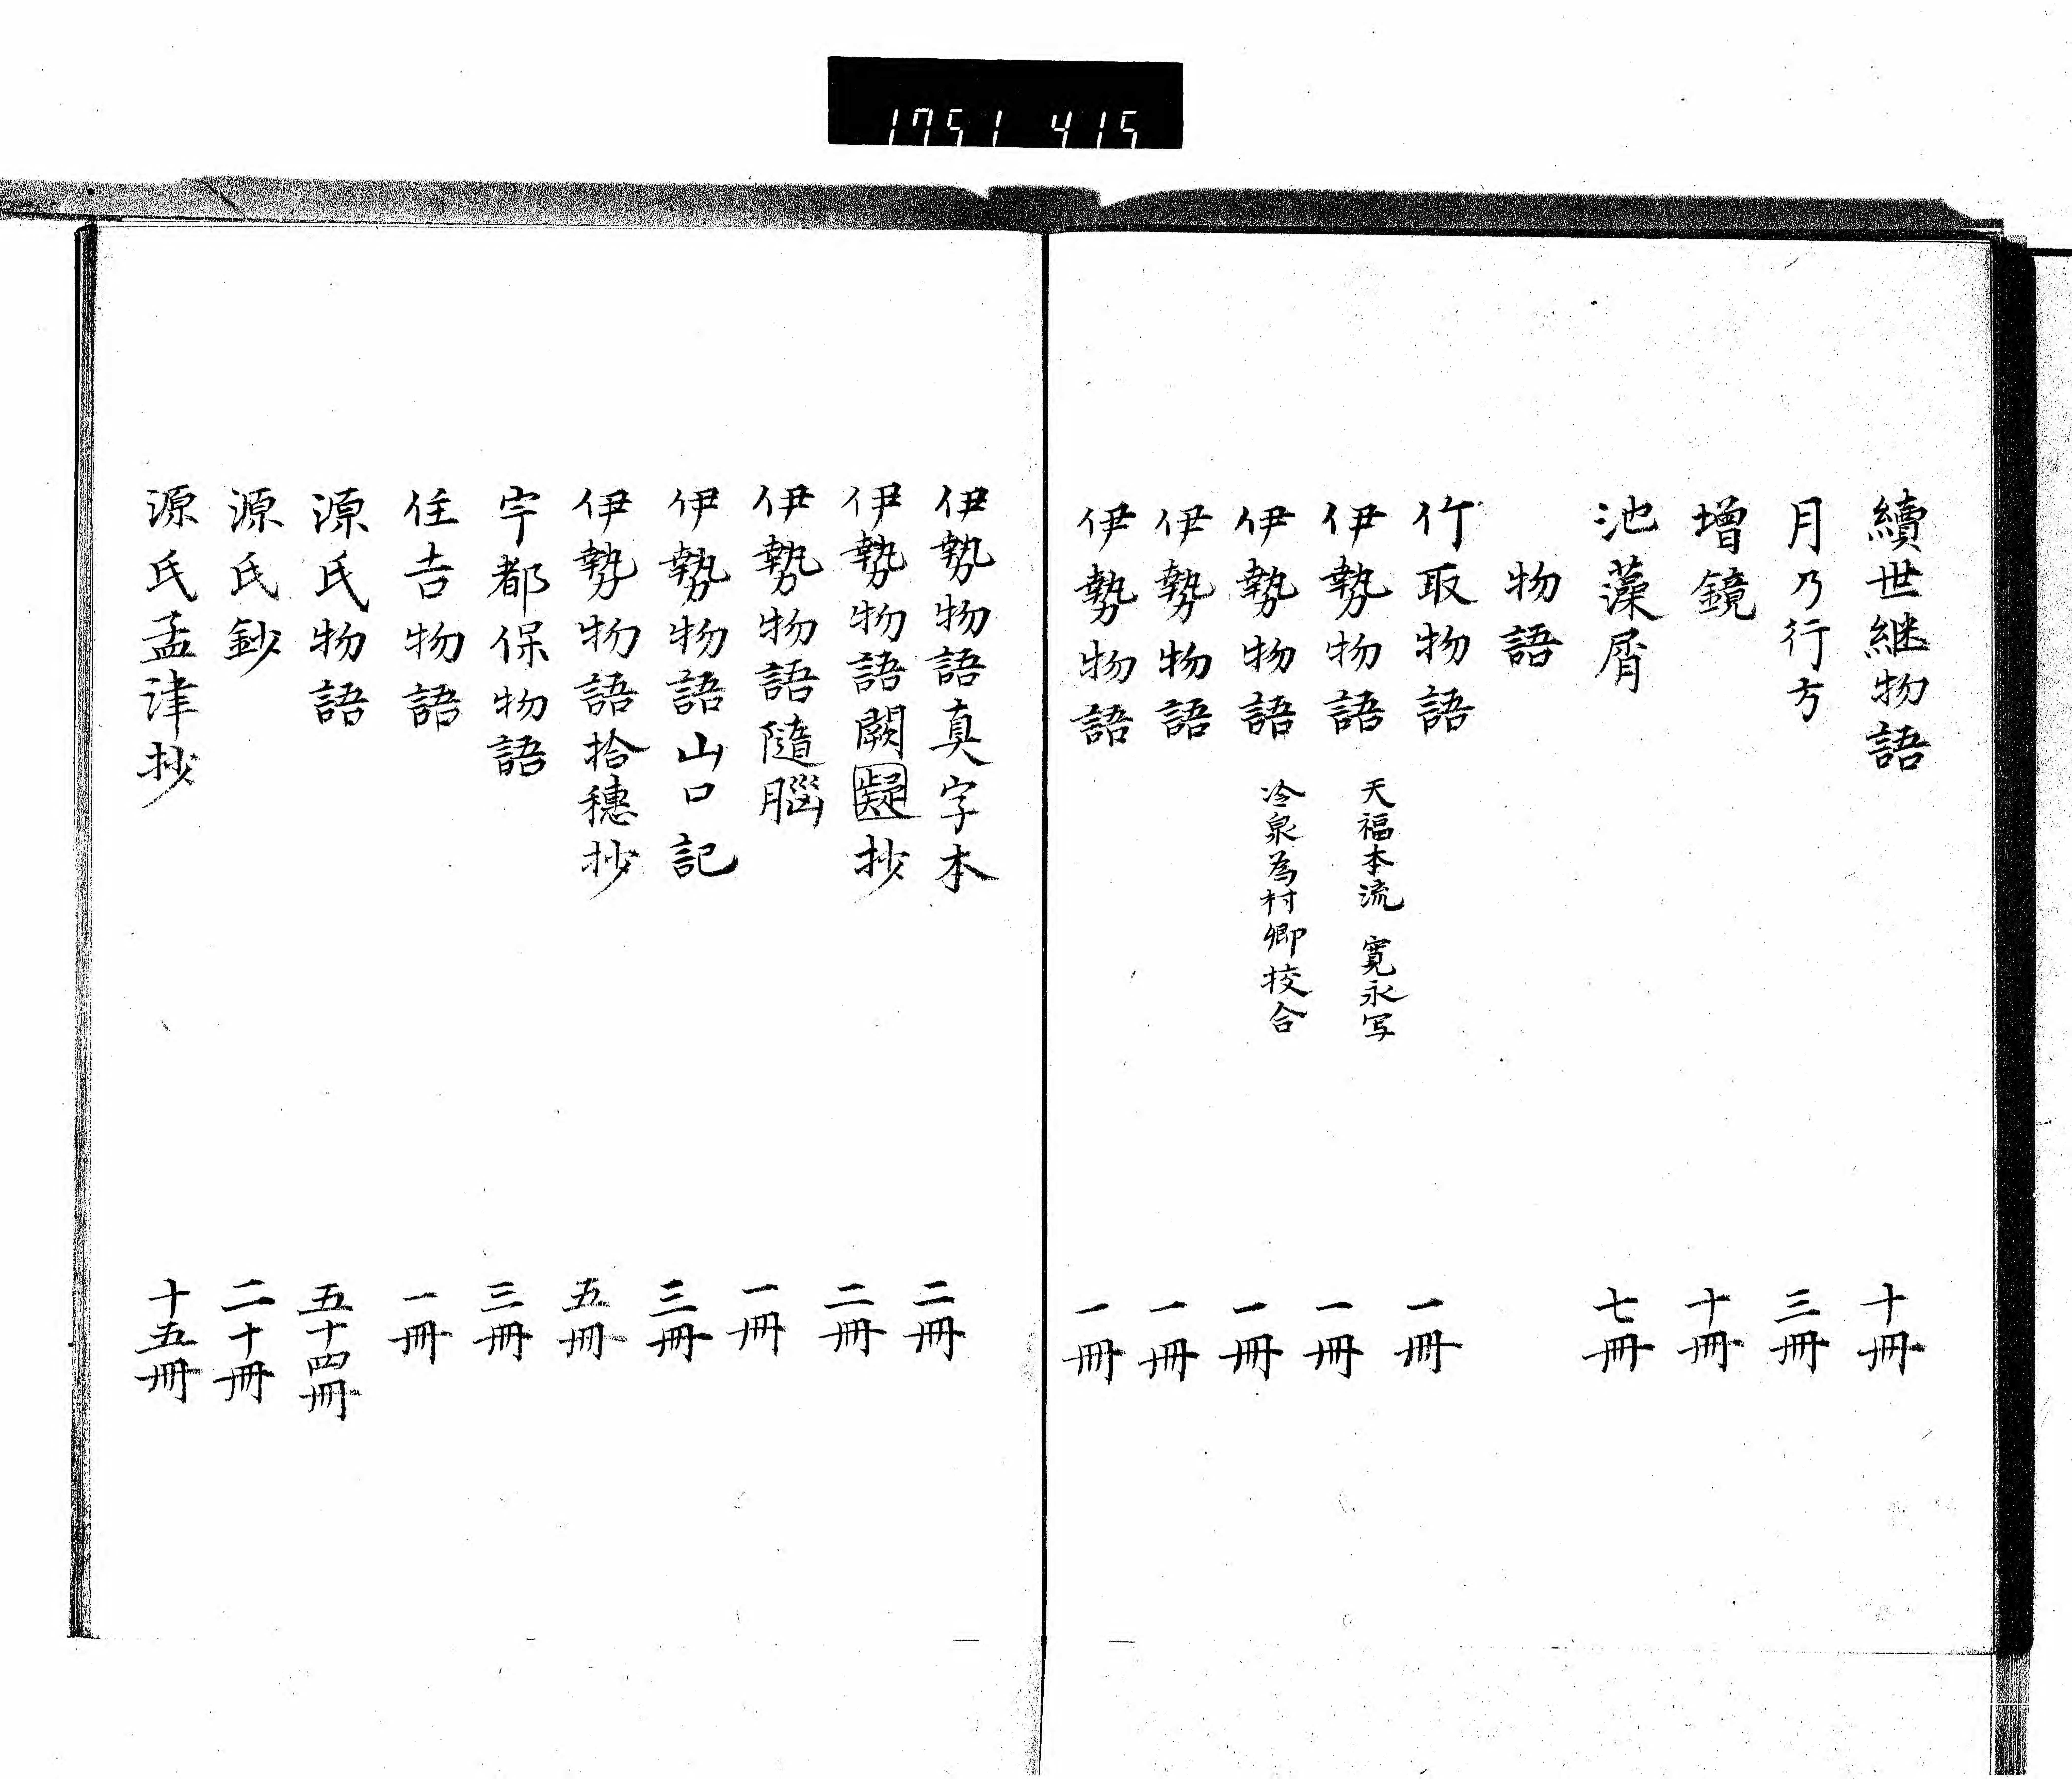 1751 415
續世継物語 十冊
月乃行方 三冊
増鏡 十冊
池藻屑 七冊
物語
竹取物語 一冊
伊勢物語 天福本流 寛永写 一冊
伊勢物語 冷泉為村卿挍合 一冊
伊勢物語 一冊
伊勢物語 一冊
伊勢物語真字本 二冊
伊勢物語闕疑抄 二冊
伊勢物語隨腦 一冊
伊勢物語山口記 三冊
伊勢物語拾穗抄 五冊
宇都保物語 三冊
住吉物語 一冊
源氏物語 五十四冊
源氏鈔 二十冊
源氏孟津抄 十五冊